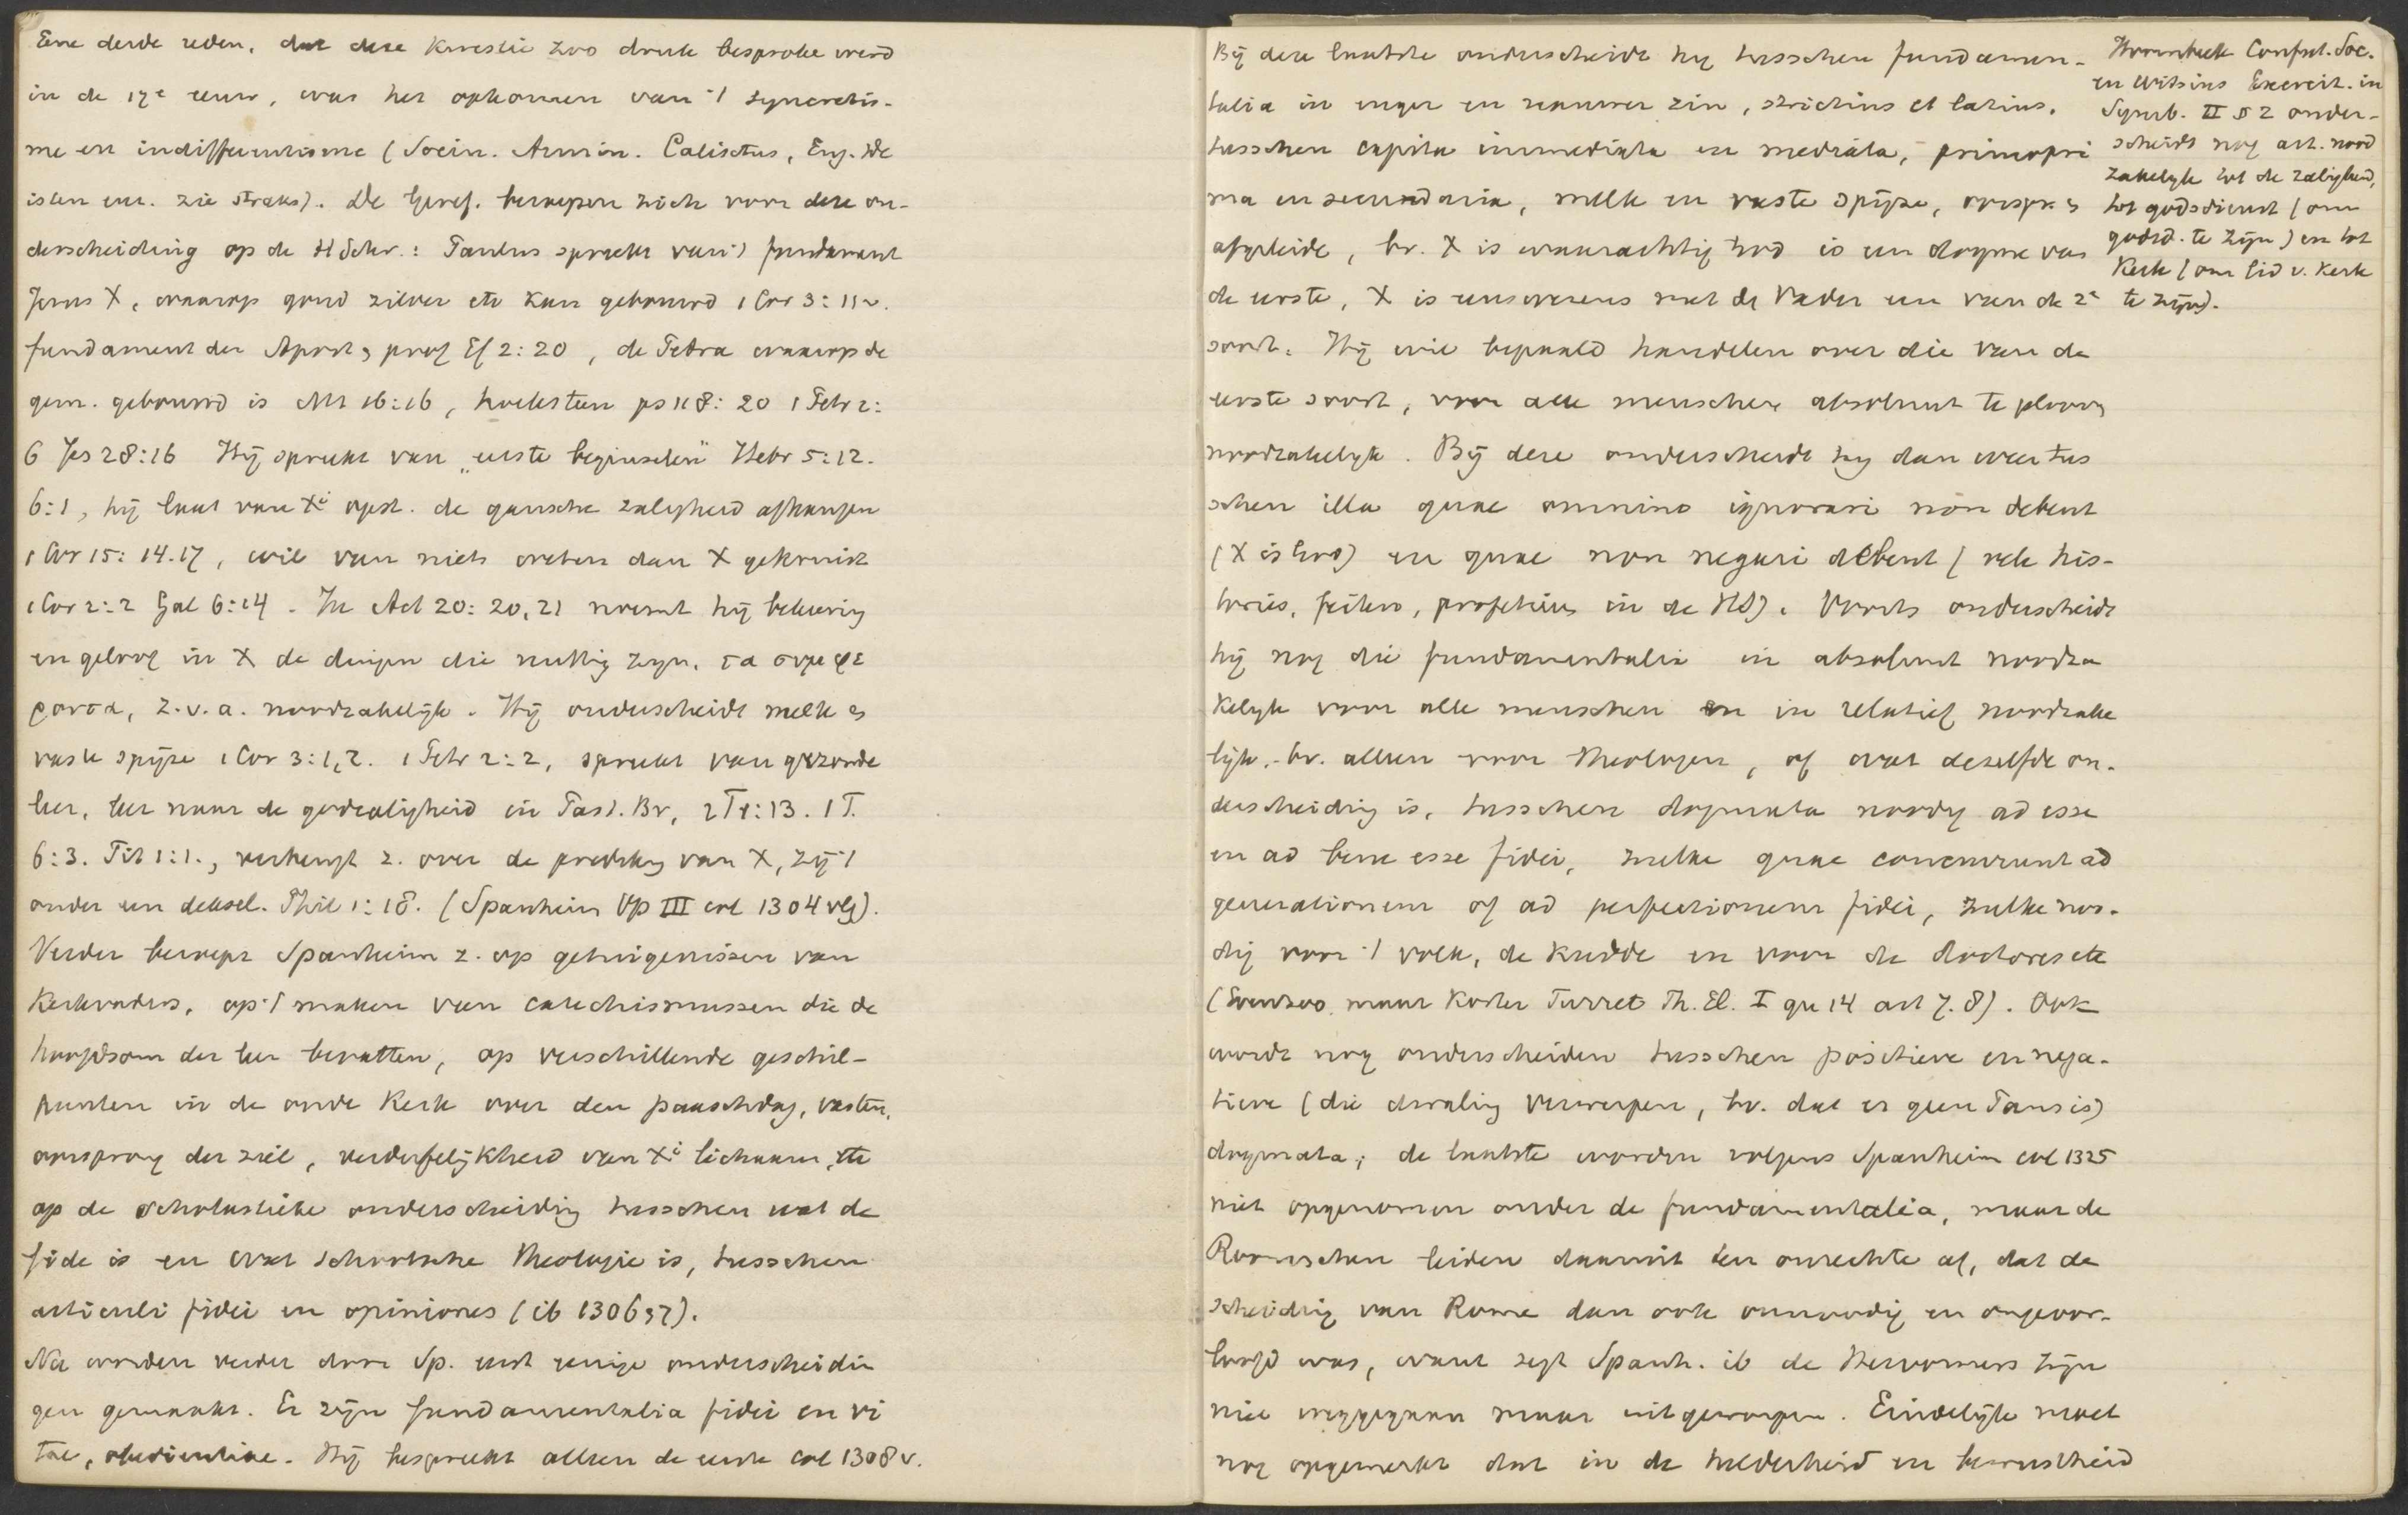 Eene derde reden, dat deze kwestie zoo druk besproke werd
in de 17e eeuw, was het opkomen van 't syncretis-
me en indifferentisme (Socin. Armin. Calixtus, Eng. De
isten enz. zie straks). De Geref. beroepen zich voor deze on-
derscheiding op de H Schr.: Paulus spreekt van 't fundament
Jezus X, waarop goud zilver etc kan gebouwd 1 Cor 3:11v.
fundament der Apost. & prof Ef 2:20, de Petra waarop de
gem. gebouwd is Mt 16:16, hoeksteen ps 118:20 1 Petr 2:
6 Jes 28:16 Hij spreekt van „eerste beginselen" Hebr 5:12.
6:1, hij laat van Xi opst. de gansche zaligheid afhangen
1 Cor 15:14.17, wil van niets weten dan X gekruist
1 Cor 2:2 Gal 6:14. In Act 20:20,21 noemt hij bekeering
en geloof in X de dingen die nuttig zijn, τα συμφε
ροντα, z.v.a. noodzakelijk. Hij onderscheidt melk &
vaste spijze 1 Cor 3:1,2. 1 Petr 2:2, spreekt van gezonde
leer, leer naar de godzaligheid in Past. Br, 2 T 1:13. 1 T.
6:3. Tit 1:1., verheugt z. over de prediking van X, zij 't
onder een deksel. Phil 1:18. (Spanheim Op III col 1304 vlg).
Verder beroept Spanheim z. op getuigenissen van
Kerkvaders, op 't maken van catechismussen die de
hoofdsom der leer bevatten, op verschillende geschil-
punten in de oude Kerk over den paaschdag, vasten,
oorsprong der ziel, verderfelijkheid van Xi lichaam, etc
op de scholastieke onderscheiding tusschen wat de
fide is en wat schoolsche theologie is, tusschen
articuli fidei en opiniones (ib 1306 37).
Nu worden verder door Sp. eerst eenige onderscheidin
gen gemaakt. Er zijn fundamentalia fidei en vi
tae, obedientiae. Hij bespreekt alleen de eerste col 1308 v.
Bij deze laatste onderscheidt hij tusschen fundamen-
talia in enger en ruimer zin, strictius et latius,
tusschen capita immediata en mediata, principri
ma en secundaria, melk en vaste spijze, oorspr. &
afgeleide, bv. X is waarachtig God is een dogma van
de eerste, X is eenswezens met de Vader een van de 2e
soort. Hij wil bepaald handelen over die van de
eerste soort, voor alle menschen absoluut te gelooven
noodzakelijk. Bij deze onderscheidt hij dan weer tus
schen illa quae omnino ignorari non debent
(X is God) en quae non negari debent (vele his-
tories, feiten, profetien in de HS). Voorts onderscheidt
hij nog die fundamentalia in absoluut noodza
kelijk voor alle menschen en in relatief noodzake
lijk, bv. alleen voor theologen, of wat dezelfde on-
derscheiding is, tusschen dogmata noodig ad esse
en ad bene esse fidei, zulke quae concurrunt ad
generationem of ad perfectionem fidei, zulke noo-
dig voor 't volk, de kudde en voor de doctores etc
(Evenzoo, maar korter Turret Th. El. I qu 14 art 7.8). Ook
wordt nog onderscheiden tusschen positieve en nega-
tieve (die dwaling verwerpen, bv. dat er geen Paus is)
dogmata; de laatste worden volgens Spanheim col 1325
niet opgenomen onder de fundamentalia, maar de
Roomschen leiden daaruit ten onrechte af, dat de
scheiding van Rome dan ook onnoodig en ongeoor-
loofd was, want zegt Spanh. ib de Hervormers zijn
niet weggegaan maar uitgeworpen. Eindelijk moet
nog opgemerkt dat in de helderheid en bewustheid
Hoornbeek Confut. Soc.
en Witsius Exercit. in
Symb. II § 2 onder-
scheidt nog art. nood
zakelijk tot de zaligheid,
tot godsdienst (om
godsd. te zijn) en tot
Kerk (om lid v. Kerk
te zijn).